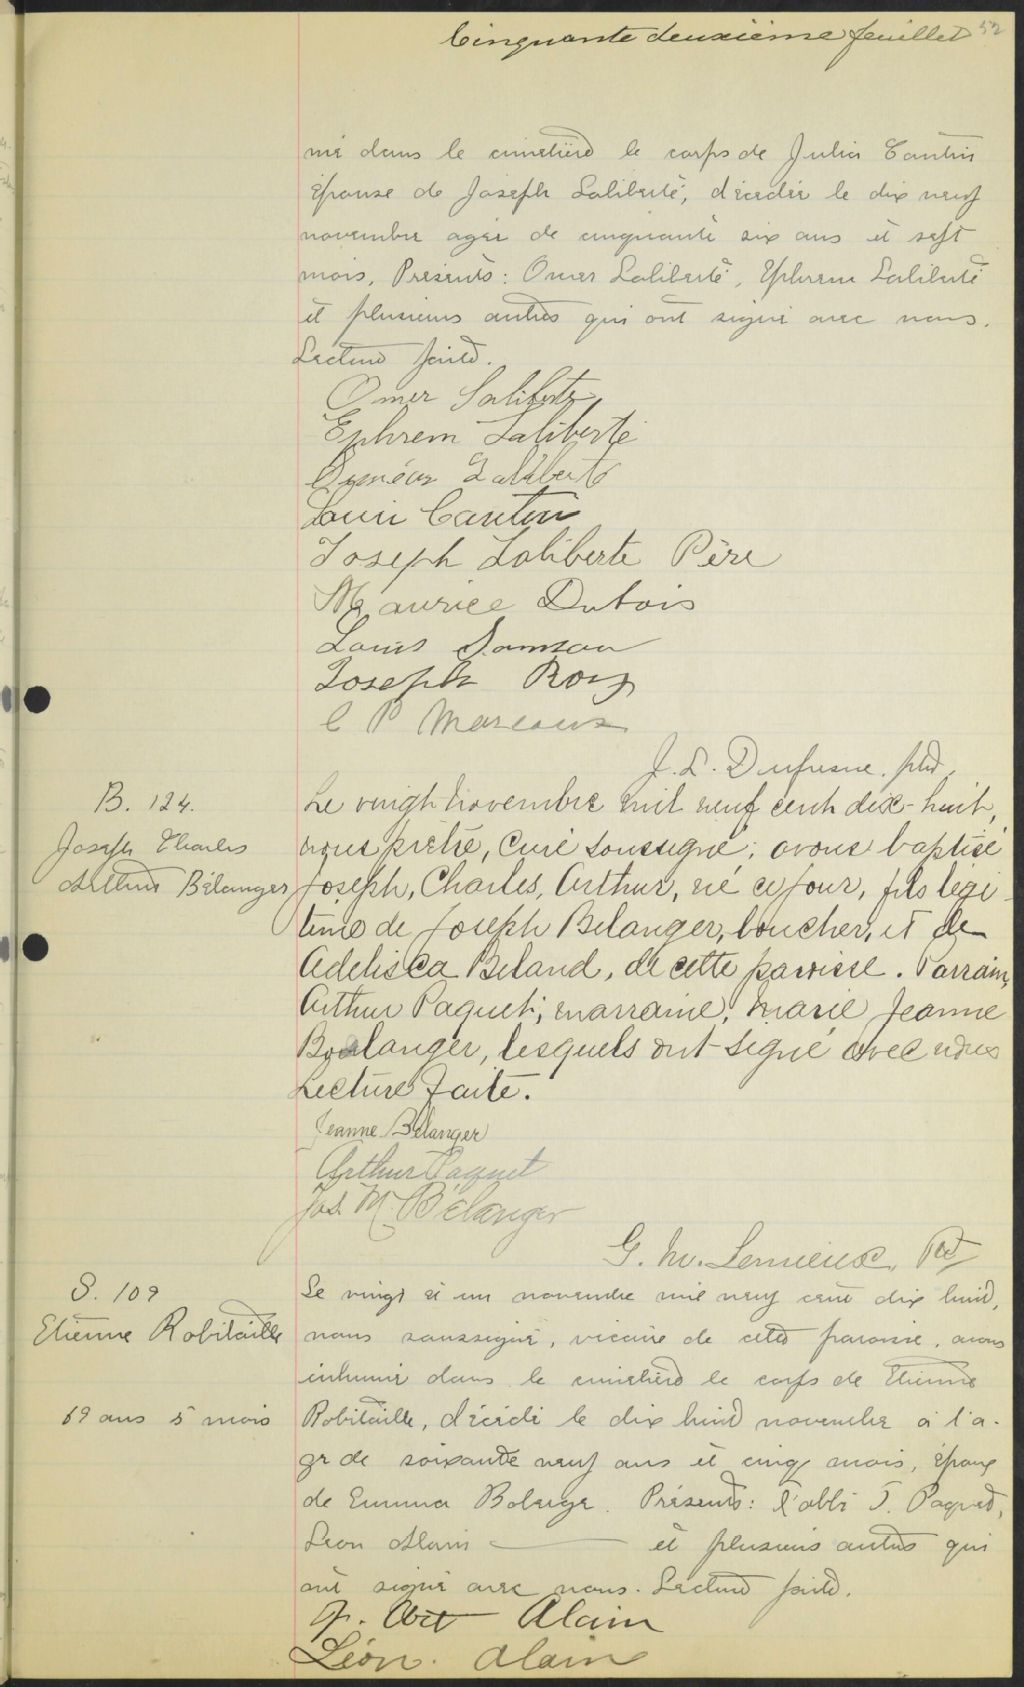 Cinquante deuxième feuillet 52
mé dans le cimetière le corps de Julia Cantin
épouse de Joseph Laliberté, décédée le dix neuf
novembre agée de cinquante six ans et sept
mois. Présents: Omer Laliberté, Ephrem Laliberté
et plusieurs autres qui ont signé avec nous.
Lecture faite.
Omer Laliberte
Ephrem Laliberte
Laliberte
Louis Cantin
Joseph Laliberte Père
Maurice Dubois
Louis Samson
Joseph Roy
C P Marcoux
J. L. Dufresne, ptre,
B. 124.
Joseph Charles
Arthur Bélanger
Le vingt novembre mil neuf cent dix-huit,
nous prêtre, curé soussigné, avons baptisé
Joseph, Charles, Arthur, né ce jour, fils légi-
time de Joseph Belanger, boucher, et de
Adelisca Beland, de cette paroisse. Parrain,
Arthur Paquet; marraine, Marie Jeanne
Boulanger, lesquels ont signé avec nous
Lecture faite.
Jeanne Bélanger
Arthur Paquet
Jos. M. Bélanger
G. M. Lemieux, Ptre
S. 109
Etienne Robitaille
69 ans 5 mois
Le vingt et un novembre mil neuf cent dix huit,
nous soussigné, vicaire de cette paroisse, avons
inhumé dans le cimetière le corps de Etienne
Robitaille, décédé le dix huit novembre à l'a-
ge de soixante neuf ans et cinq mois, époux
de Emma Boberge. Présents: l'abbé J. Paquet,
Leon Alain et plusieurs autres qui
ont signé avec nous. Lecture faite.
J. Alain
Léon. Alain